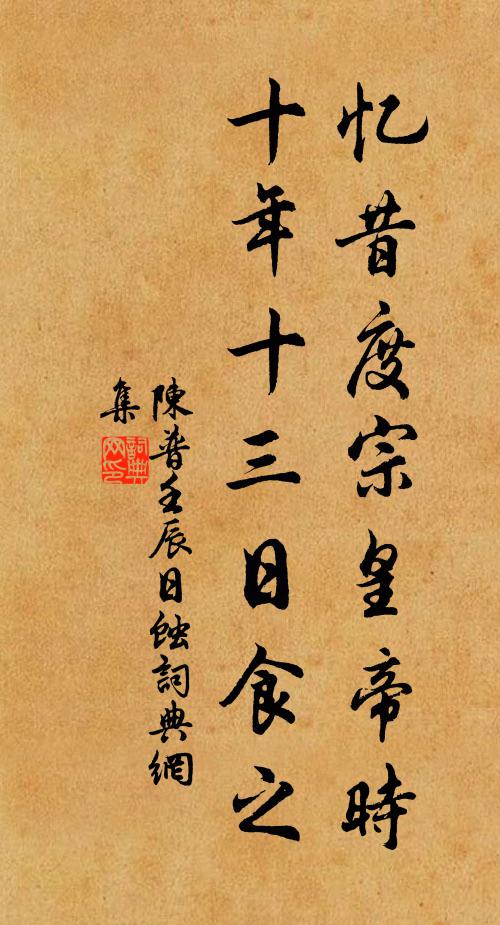 忆昔度宗皇帝時
十年十三日食之
陳普壬辰日蝕詞典網
集
詞典網印